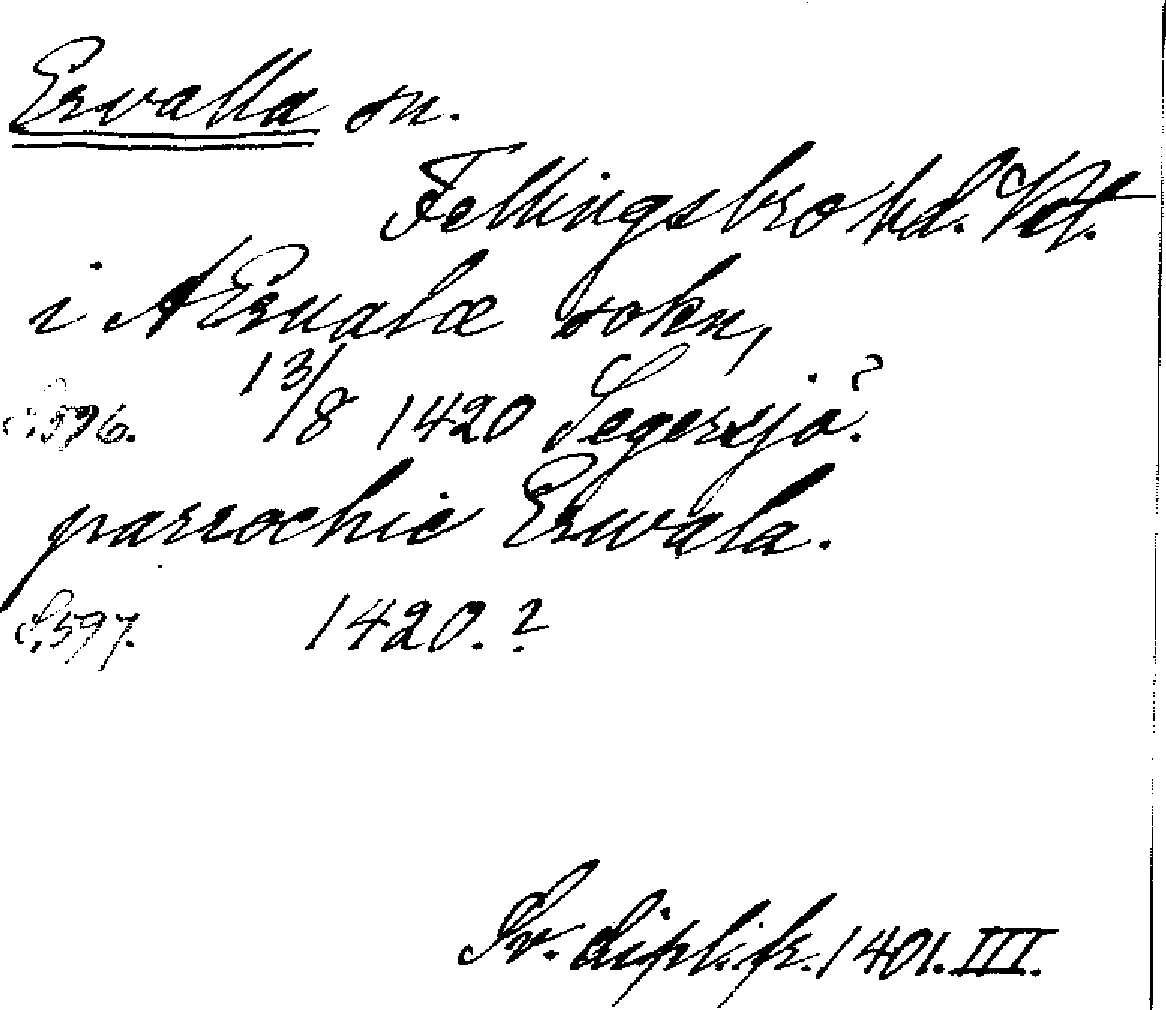 Ervalla sn.
Fellingsbro hd. Vstm.
i Ærualæ sokn,
S. 596. 13/8 1420 Segersjö?.
parrochie Erwala.
S. 597. 1420.?
Sv. dipl. fr. 1401. III.